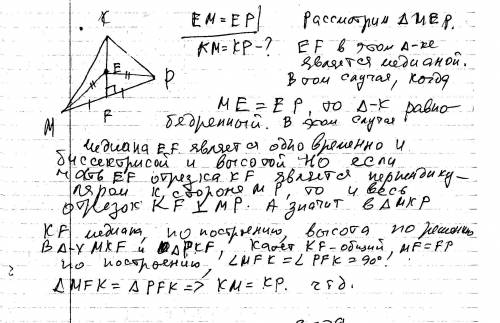 K
E
P
M
F
EM = EP
KM = KP - ?
Рассмотрим ΔMEP.
EF в этом Δ-ке
является медианой.
В том случае, когда
ME = EP, то Δ-к равно-
бедренный. В этом случае
медиана EF является одновременно и
биссектрисой и высотой. Но если
часть EF отрезка KF является перпендику-
ляром к стороне MP, то и весь
отрезок KF ⊥ MP. А значит в ΔMKP
KF медиана по построению, высота по решению
В Δ-х MKF и ΔPKF, KF-общий, MF=FP
по построению, ∠MFK=∠PFK=90°.
ΔMFK = ΔPFK => KM = KP. чтд.